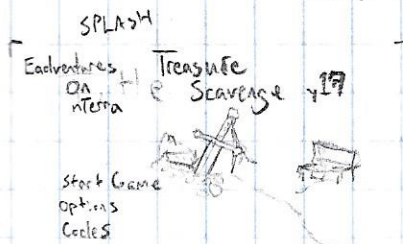 SPLASH
Eadventures
On
nTerra
The
Treasure
Scavenge v17
Start Game
Options
Codes